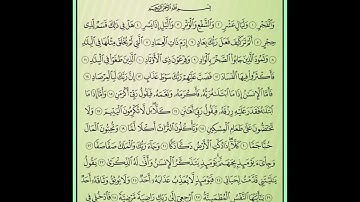 بِسْمِ اللَّهِ الرَّحْمَٰنِ الرَّحِيمِ
وَالْفَجْرِ ١ وَلَيَالٍ عَشْرٍ ٢ وَالشَّفْعِ وَالْوَتْرِ ٣ وَاللَّيْلِ إِذَا يَسْرِ ٤ هَلْ فِي ذَٰلِكَ قَسَمٌ لِّذِي
حِجْرٍ ٥ أَلَمْ تَرَ كَيْفَ فَعَلَ رَبُّكَ بِعَادٍ ٦ إِرَمَ ذَاتِ الْعِمَادِ ٧ الَّتِي لَمْ يُخْلَقْ مِثْلُهَا فِي الْبِلَادِ
٨ وَثَمُودَ الَّذِينَ جَابُوا الصَّخْرَ بِالْوَادِ ٩ وَفِرْعَوْنَ ذِي الْأَوْتَادِ ١٠ الَّذِينَ طَغَوْا فِي الْبِلَادِ
١١ فَأَكْثَرُوا فِيهَا الْفَسَادَ ١٢ فَصَبَّ عَلَيْهِمْ رَبُّكَ سَوْطَ عَذَابٍ ١٣ إِنَّ رَبَّكَ لَبِالْمِرْصَادِ ١٤
فَأَمَّا الْإِنسَانُ إِذَا مَا ابْتَلَاهُ رَبُّهُ فَأَكْرَمَهُ وَنَعَّمَهُ فَيَقُولُ رَبِّي أَكْرَمَنِ ١٥ وَأَمَّا إِذَا مَا
ابْتَلَاهُ فَقَدَرَ عَلَيْهِ رِزْقَهُ فَيَقُولُ رَبِّي أَهَانَنِ ١٦ كَلَّا بَل لَّا تُكْرِمُونَ الْيَتِيمَ ١٧ وَلَا
تَحَاضُّونَ عَلَىٰ طَعَامِ الْمِسْكِينِ ١٨ وَتَأْكُلُونَ التُّرَاثَ أَكْلًا لَّمًّا ١٩ وَتُحِبُّونَ الْمَالَ
حُبًّا جَمًّا ٢٠ كَلَّا إِذَا دُكَّتِ الْأَرْضُ دَكًّا دَكًّا ٢١ وَجَاءَ رَبُّكَ وَالْمَلَكُ صَفًّا صَفًّا ٢٢
وَجِيءَ يَوْمَئِذٍ بِجَهَنَّمَ يَوْمَئِذٍ يَتَذَكَّرُ الْإِنسَانُ وَأَنَّىٰ لَهُ الذِّكْرَىٰ ٢٣ يَقُولُ
يَا لَيْتَنِي قَدَّمْتُ لِحَيَاتِي ٢٤ فَيَوْمَئِذٍ لَّا يُعَذِّبُ عَذَابَهُ أَحَدٌ ٢٥ وَلَا يُوثِقُ وَثَاقَهُ أَحَدٌ
٢٦ يَا أَيَّتُهَا النَّفْسُ الْمُطْمَئِنَّةُ ٢٧ ارْجِعِي إِلَىٰ رَبِّكِ رَاضِيَةً مَّرْضِيَّةً ٢٨ فَادْخُلِي فِي